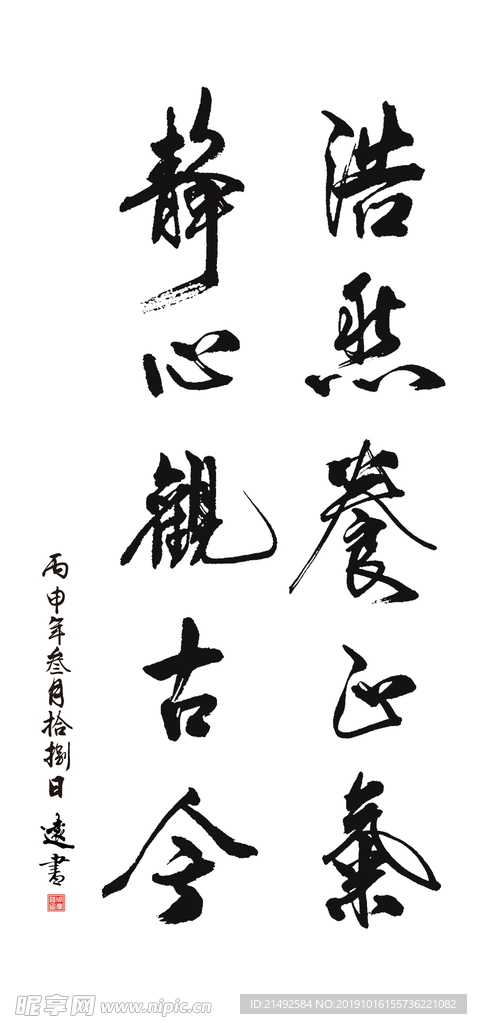 浩然養正氣
靜心觀古今
丙申年叁月拾捌日 遠書
昵享网 www.nipic.cn
ID:21492584 NO:20191016155736221082